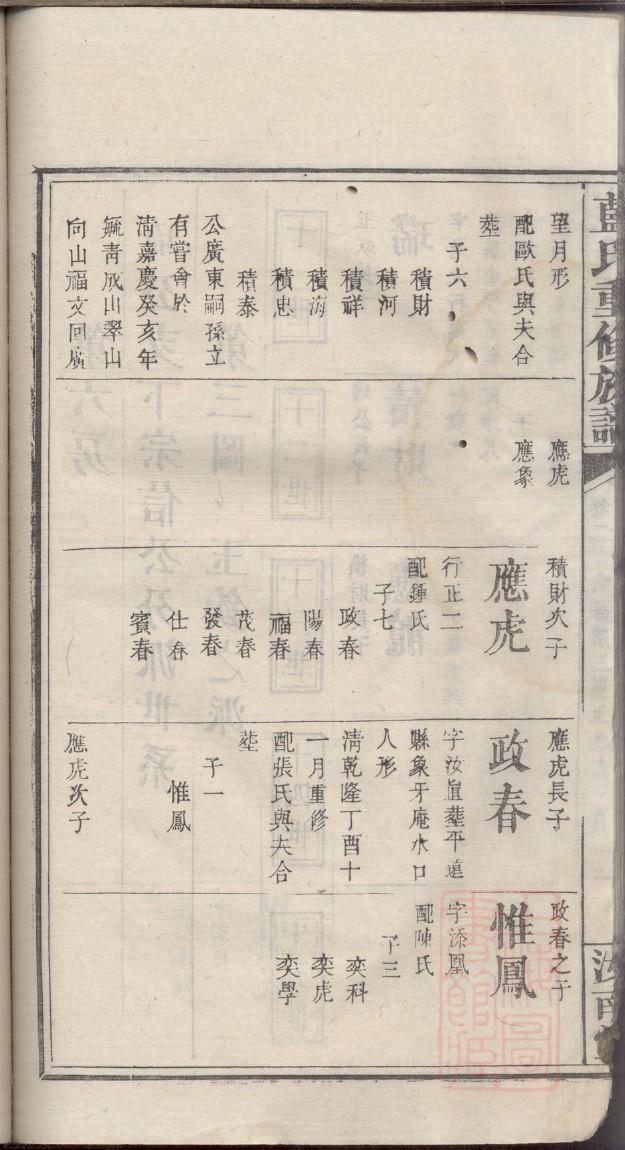 藍氏重修族譜
望月形
配歐氏與夫合
塟
子六
積財
積河
積祥
積海
積忠
積泰
公廣東嗣孫立
有嘗會於
淸嘉慶癸亥年
毓靑成山翠山
向山福文回廣
應虎
應象
積財次子
應虎
行正二
配鍾氏
子七
政春
陽春
福春
茂春
發春
仕春
賓春
應虎長子
政春
字汝直塟平遠
縣象牙庵水口
人形
淸乾隆丁酉十
一月重修
配張氏與夫合
塟
子一
惟鳳
應虎次子
政春之子
惟鳳
字添凰
配陳氏
子三
奕科
奕虎
奕學
汝南堂